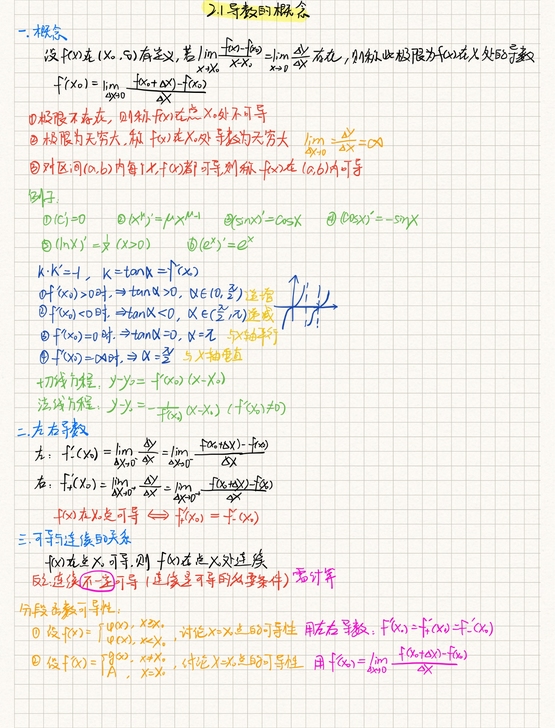 2.1 导数的概念
一. 概念
设 f(x)在(x₀,δ)有定义, 若 lim x→x₀ f(x)-f(x₀)/x-x₀ = lim x→0 Δy/Δx 存在, 则称此极限为f(x)在x₀处的导数
f'(x₀) = lim Δx→0 f(x₀+Δx)-f(x₀)/Δx
①极限不存在, 则称f(x)在点x₀处不可导
② 极限为无穷大, 称 f(x)在x₀处导数为无穷大 lim Δx→0 Δy/Δx = ∞
③对区间(a,b)内每个x, f(x)都可导, 则称 f(x)在(a,b)内可导
例子:
①(C)'=0 ②(x^μ)'=μx^μ-1 ③(sinx)'=cosx ④(cosx)'=-sinx
⑤(lnx)'=1/x (x>0) ⑥(e^x)'=e^x
k·k'=-1, k=tanα=f'(x₀)
①f'(x₀)>0时, ⇒tanα>0, α∈(0,π/2) 递增
②f'(x₀)<0时, ⇒tanα<0, α∈(π/2,π) 递减
③f'(x₀)=0时, ⇒tanα=0, α=π 与x轴平行
④f'(x₀)=∞时, ⇒α=π/2 与x轴垂直
切线方程: y-y₀=f'(x₀)(x-x₀)
法线方程: y-y₀=-1/f'(x₀)(x-x₀) (f'(x₀)≠0)
二. 左右导数
左: f'₋(x₀)=lim Δx→0⁻ Δy/Δx=lim Δx→0⁻ f(x₀+Δx)-f(x₀)/Δx
右: f'₊(x₀)=lim Δx→0⁺ Δy/Δx=lim Δx→0⁺ f(x₀+Δx)-f(x₀)/Δx
f(x)在x₀点可导 ⇔ f'₊(x₀)=f'₋(x₀)
三. 可导与连续的关系
f(x)在点x₀可导, 则f(x)在点x₀处连续
反之: 连续不一定可导 (连续是可导的必要条件) 需计算
分段函数可导性:
① 设f(x)={φ(x), x≥x₀ φ(x), x<x₀, 讨论x=x₀点的可导性 用左右导数: f'(x₀)=f'₊(x₀)=f'₋(x₀)
② 设f(x)={g(x), x≠x₀ A, x=x₀, 讨论x=x₀点的可导性 用f'(x₀)=lim Δx→0 f(x₀+Δx)-f(x₀)/Δx